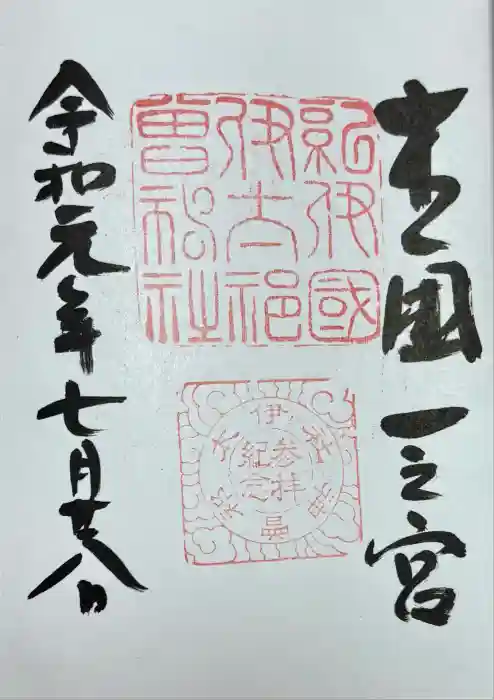 國一之宮
紀伊國
伊太祁
曽神社
伊太祁曽神社
参拝
紀念
令和元年七月廿八日